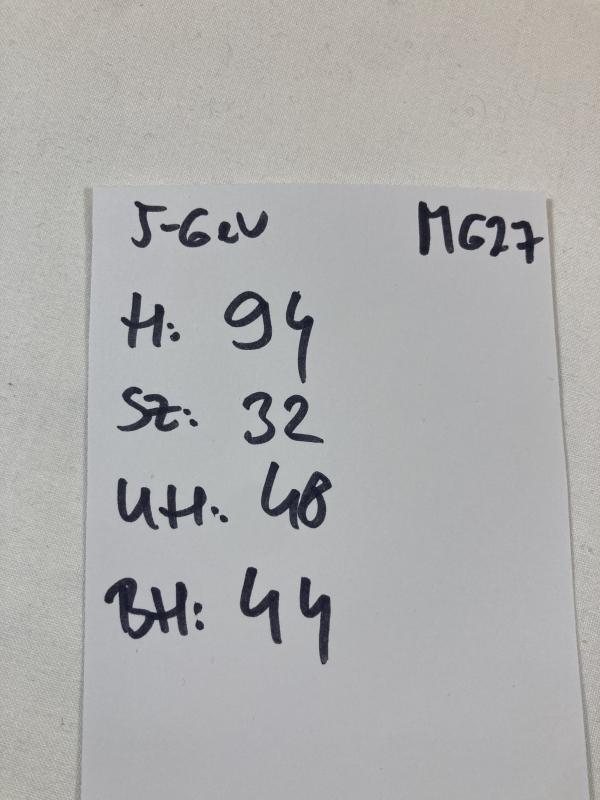 5-6 év M627
H: 94
SZ: 32
UH: 48
BH: 44